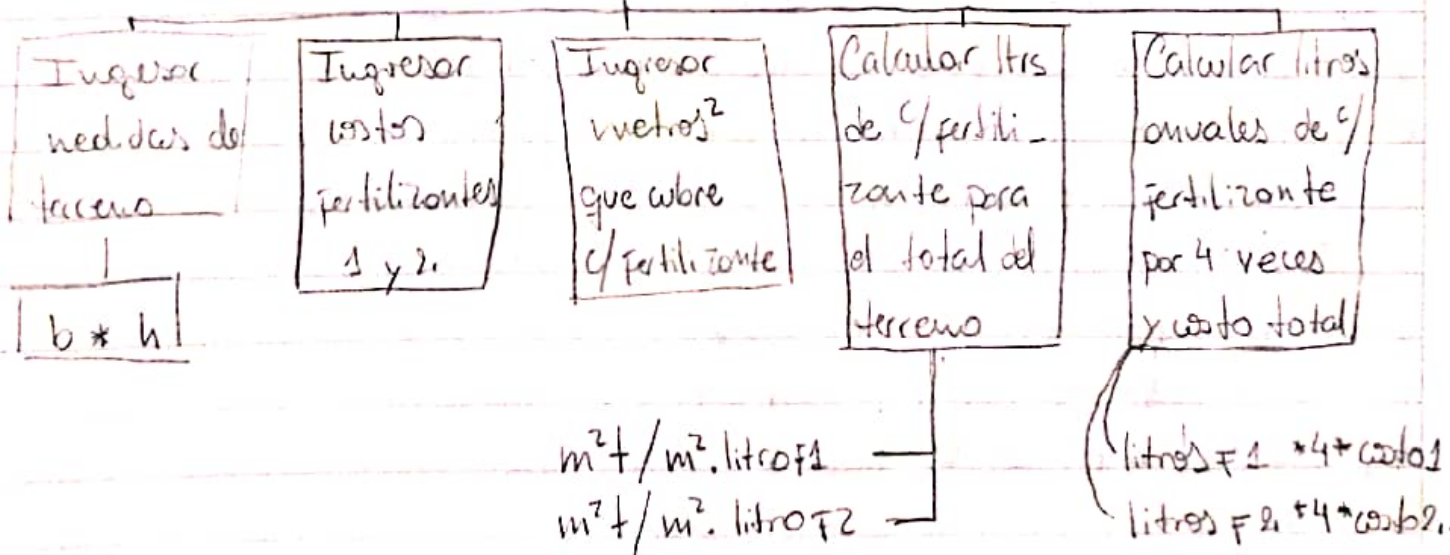 Ingresar
medidas del
terreno
b * h
Ingresar
costos
fertilizantes
1 y 2.
Ingresar
metros²
que cubre
c/ fertilizante
Calcular ltrs
de c/ fertili-
zante para
el total del
terreno
m²t/m².litroF1
m²t/m².litroF2
Calcular litros
anuales de c/
fertilizante
por 4 veces
y costo total
litros F1 *4* costo1
litros F2 *4* costo2.